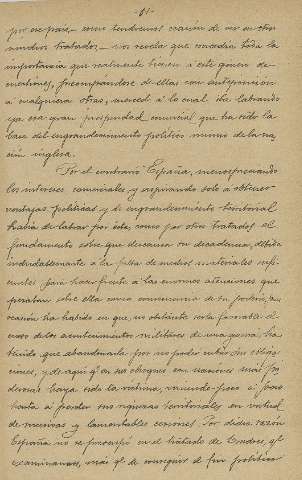 - 61 -
por ese país,- como tendremos ocasión de ver en otros
varios tratados,- nos revela que concedía toda la
importancia que realmente tienen a este género de
cuestiones, preocupándose de ellas con anteposición
a cualquiera otras, merced á lo cual iba labrando
ya esa gran prosperidad comercial que ha sido la
base del engrandecimiento político mismo de la na-
ción inglesa.
Por el contrario España, menospreciando
los intereses comerciales y aspirando solo a obtener
ventajas políticas y de engrandecimiento territorial
había de labrar por este, como por otros tratados el
fundamento sobre que descansa su decadencia, debida
indudablemente a la falta de medios materiales sufi-
cientes para hacer frente á las enormes atenciones que
pesaban sobre ella como consecuencia de su poderío,
ocasión ha habido en que no obstante serla favorable el
curso de los acontecimientos militares de una guerra, ha
tenido que abandonarla por no poder cubrir sus obliga-
ciones, y de aquí q' en sus choques con naciones más po-
derosas haya sido la víctima, viniendo
hasta a perder sus riquezas territoriales en virtud
de excesivas y lamentables cesiones. Por dicha razón
España no se preocupó en el tratado de Londres, q'
examinamos, más q' de conseguir el fin político